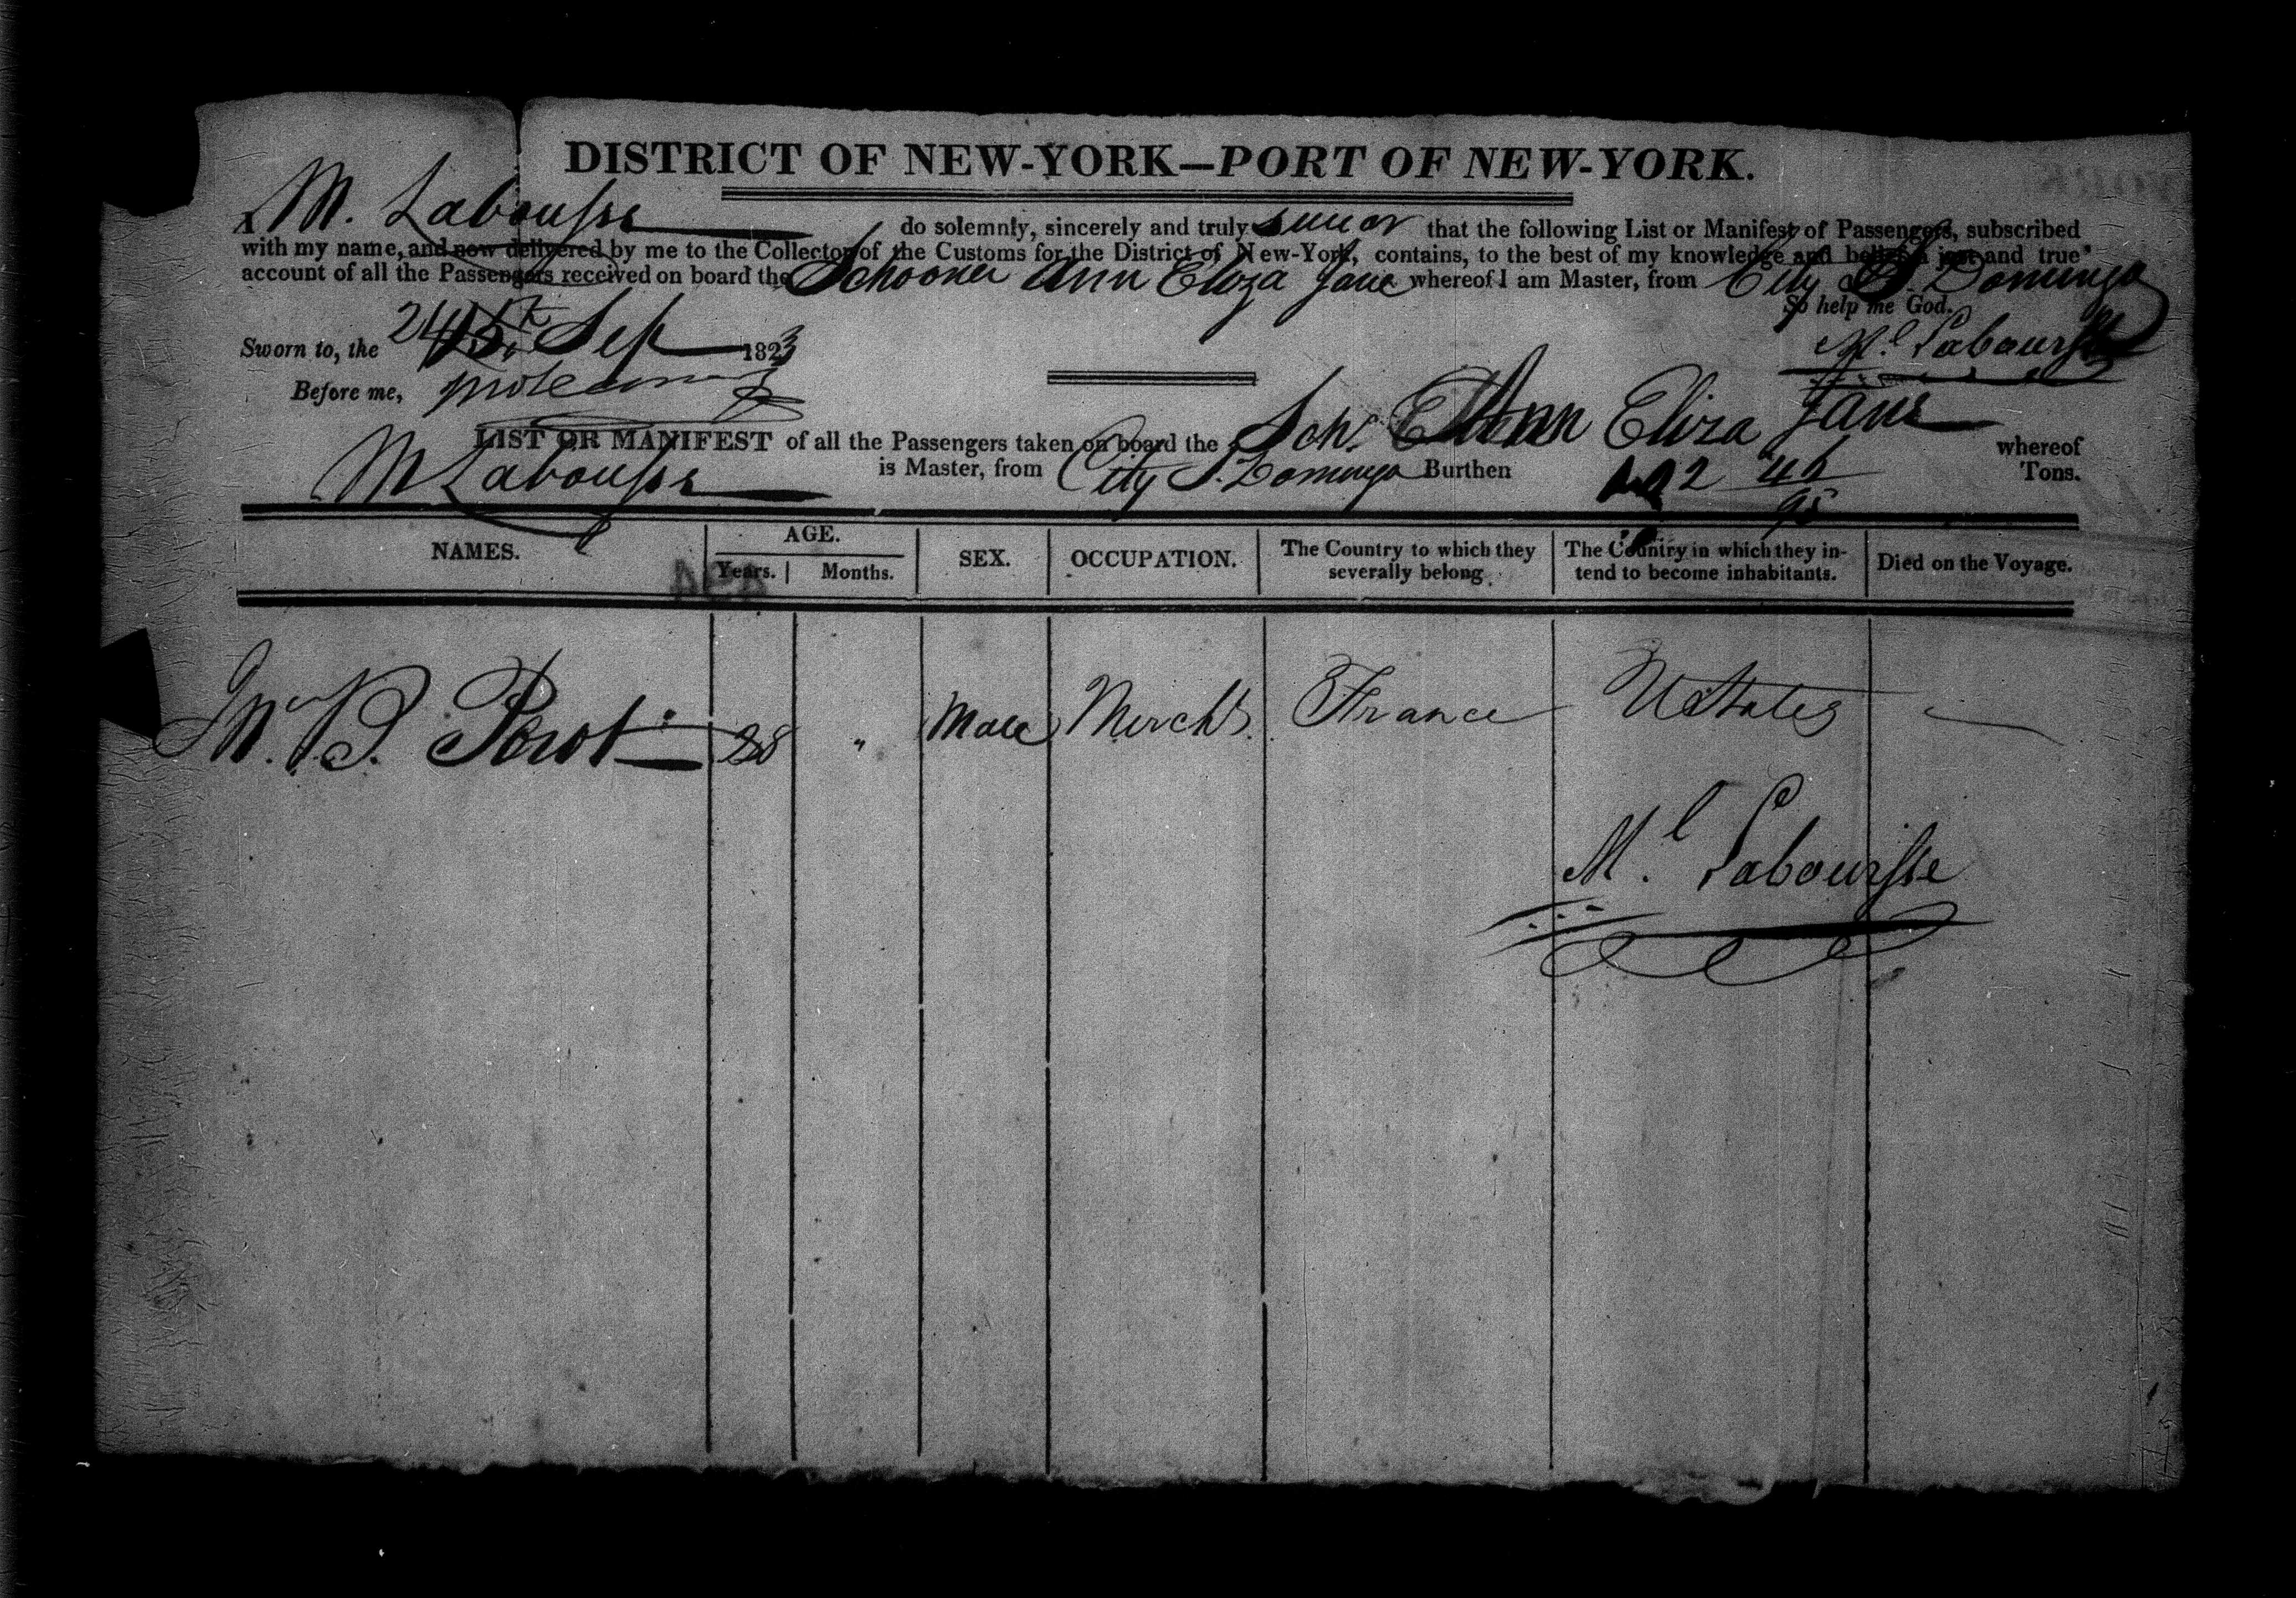 DISTRICT OF NEW-YORK—PORT OF NEW-YORK.
I M. Labousse do solemnly, sincerely and truly swear that the following List or Manifest of Passengers, subscribed
with my name, and now delivered by me to the Collector of the Customs for the District of New-York, contains, to the best of my knowledge and belief a just and true
account of all the Passengers received on board the Schooner Ann Eliza Jane whereof I am Master, from City St. Domingo
So help me God.
Sworn to, the 24 Sep 1823
Ml. Laboursse
Before me,
LIST OR MANIFEST of all the Passengers taken on board the Schr. Ann Eliza Jane whereof
M Labousse is Master, from City St. Domingo Burthen 102 46/95 Tons.
NAMES. AGE. SEX. OCCUPATION. The Country to which they severally belong. The Country in which they intend to become inhabitants. Died on the Voyage.
Years. Months.
Mr. P. Perot 28 " Male Mercht. France UStates
Ml. Laboursse